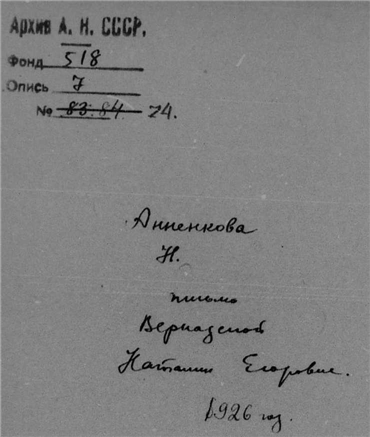 Архив А. Н. СССР.
Фонд 518
Опись 7
№ 83.84 24.
Анненкова
Н.
письмо
Вернадской
Наталии Егоровне.
1926 год.